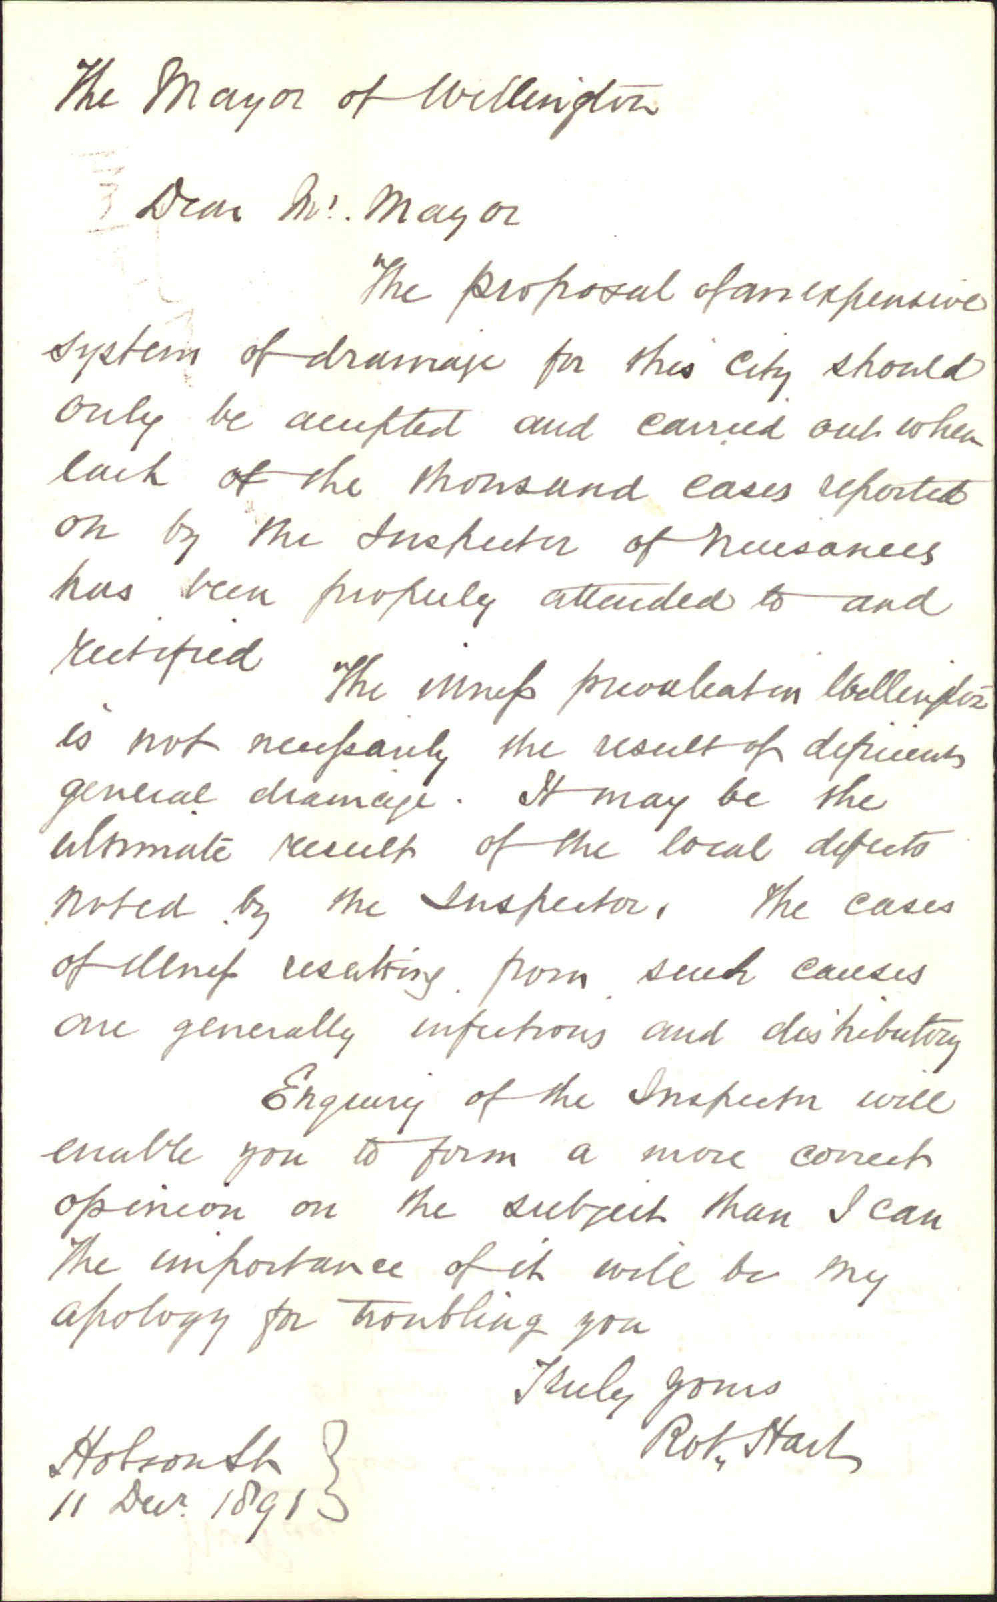 The Mayor of Wellington
Dear Mr. Mayor
The proposal of an expensive
system of drainage for this City should
only be accepted and carried out when
each of the thousand cases reported
on by the Inspector of Nuisances
has been properly attended to and
rectified
The illness prevalent in Wellington
is not necessarily the result of deficient
general drainage. It may be the
ultimate result of the local defects
noted by the Inspector. The cases
of illness resulting from such causes
are generally infectious and distributory
Enquiry of the Inspector will
enable you to form a more correct
opinion on the subject than I can
The importance of it will be my
apology for troubling you
Truly yours
Robt. Hart
Hobson St
11 Decr. 1891